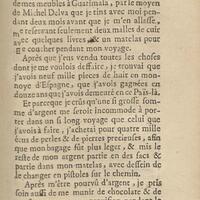 de mes meubles à Guatimala, par le moyen
de Michel Delva que je tins avec moi pen-
dant deux mois avant que je m'en allasse,
me reservant seulement deux malles de cuir
avec quelques livres & un matelas pour
me coucher pendant mon voyage.
Après que j'eus vendu toutes les choses
dont je me voulois deffaire, je trouvai que
j'avois neuf mille pieces de huit en mon-
noye d'Espagne, que j'avois gagnées en
douze années que j'avois demeuré en ce Païs-là.
Et parce que je crûs qu'une si grosse som-
me d'argent me seroit incommode à por-
ter dans un si long voyage que celui que
j'avois à faire, j'achetai pour quatre mille
écus de perles & de pierres precieuses, afin
que mon bagage fût plus leger, & mis le
reste de mon argent partie en des sacs &
partie dans mon matelas, avec dessein de
le changer en pistoles sur le chemin.
Après m'être pourvû d'argent, je pris
soin aussi de me munir de chocolate & de